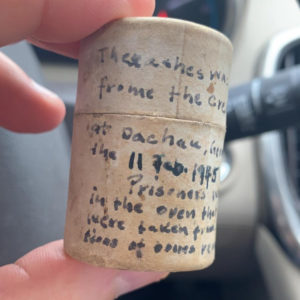 These ashes was
frome the cre
at Dachau, Ge
the 11 Feb. 1945
Prisoners w
in the oven tha
were taken from
tions of